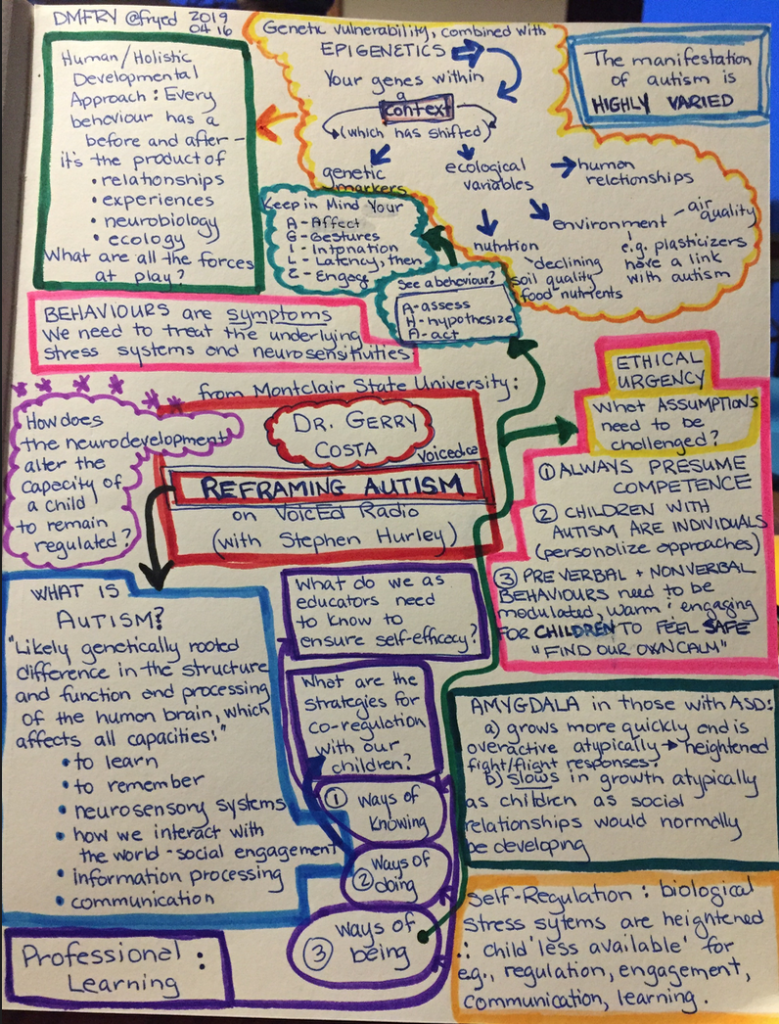 DMFRY @fryed 2019
04 16
Human/Holistic
Developmental
Approach: Every
behaviour has a
before and after -
it's the product of
• relationships
• experiences
• neurobiology
• ecology
What are all the forces
at play?
Genetic vulnerability, combined with
EPIGENETICS
Your genes within
a
context
(which has shifted)
genetic
markers
ecological
variables
human
relationships
environment
air
quality
e.g. plasticizers
have a link
with autism
nutrition
declining
soil quality
food nutrients
The manifestation
of autism is
HIGHLY VARIED
Keep in Mind Your
A - Affect
G - Gestures
I - Intonation
L - Latency, then
E - Engage
See a behaviour?
A - assess
H - hypothesize
A - act
BEHAVIOURS are symptoms
We need to treat the underlying
stress systems and neurosensitivities
from Montclair State University:
DR. GERRY
COSTA
voiced.ca
REFRAMING AUTISM
on VoicEd Radio
(with Stephen Hurley)
How does
the neurodevelopment
alter the
capacity of
a child
to remain
regulated?
ETHICAL
URGENCY
What ASSUMPTIONS
need to be
challenged?
① ALWAYS PRESUME
COMPETENCE
② CHILDREN WITH
AUTISM ARE INDIVIDUALS
(personalize approaches)
③ PREVERBAL + NONVERBAL
BEHAVIOURS need to be
modulated, warm & engaging
FOR CHILDREN TO FEEL SAFE
"FIND OUR OWN CALM"
WHAT IS
AUTISM?
"Likely genetically rooted
difference in the structure
and function and processing
of the human brain, which
affects all capacities:"
• to learn
• to remember
• neurosensory systems
• how we interact with
the world - social engagement
• information processing
• communication
What do we as
educators need
to know to
ensure self-efficacy?
What are the
strategies for
co-regulation
with our
children?
① Ways of
Knowing
② Ways of
doing
③ Ways of
being
Professional:
Learning
AMYGDALA in those with ASD:
a) grows more quickly and is
overactive atypically → heightened
fight/flight responses?
b) slows in growth atypically
as children as social
relationships would normally
be developing
Self-Regulation: biological
stress sytems are heightened
∴ child 'less available' for
e.g., regulation, engagement,
communication, learning.